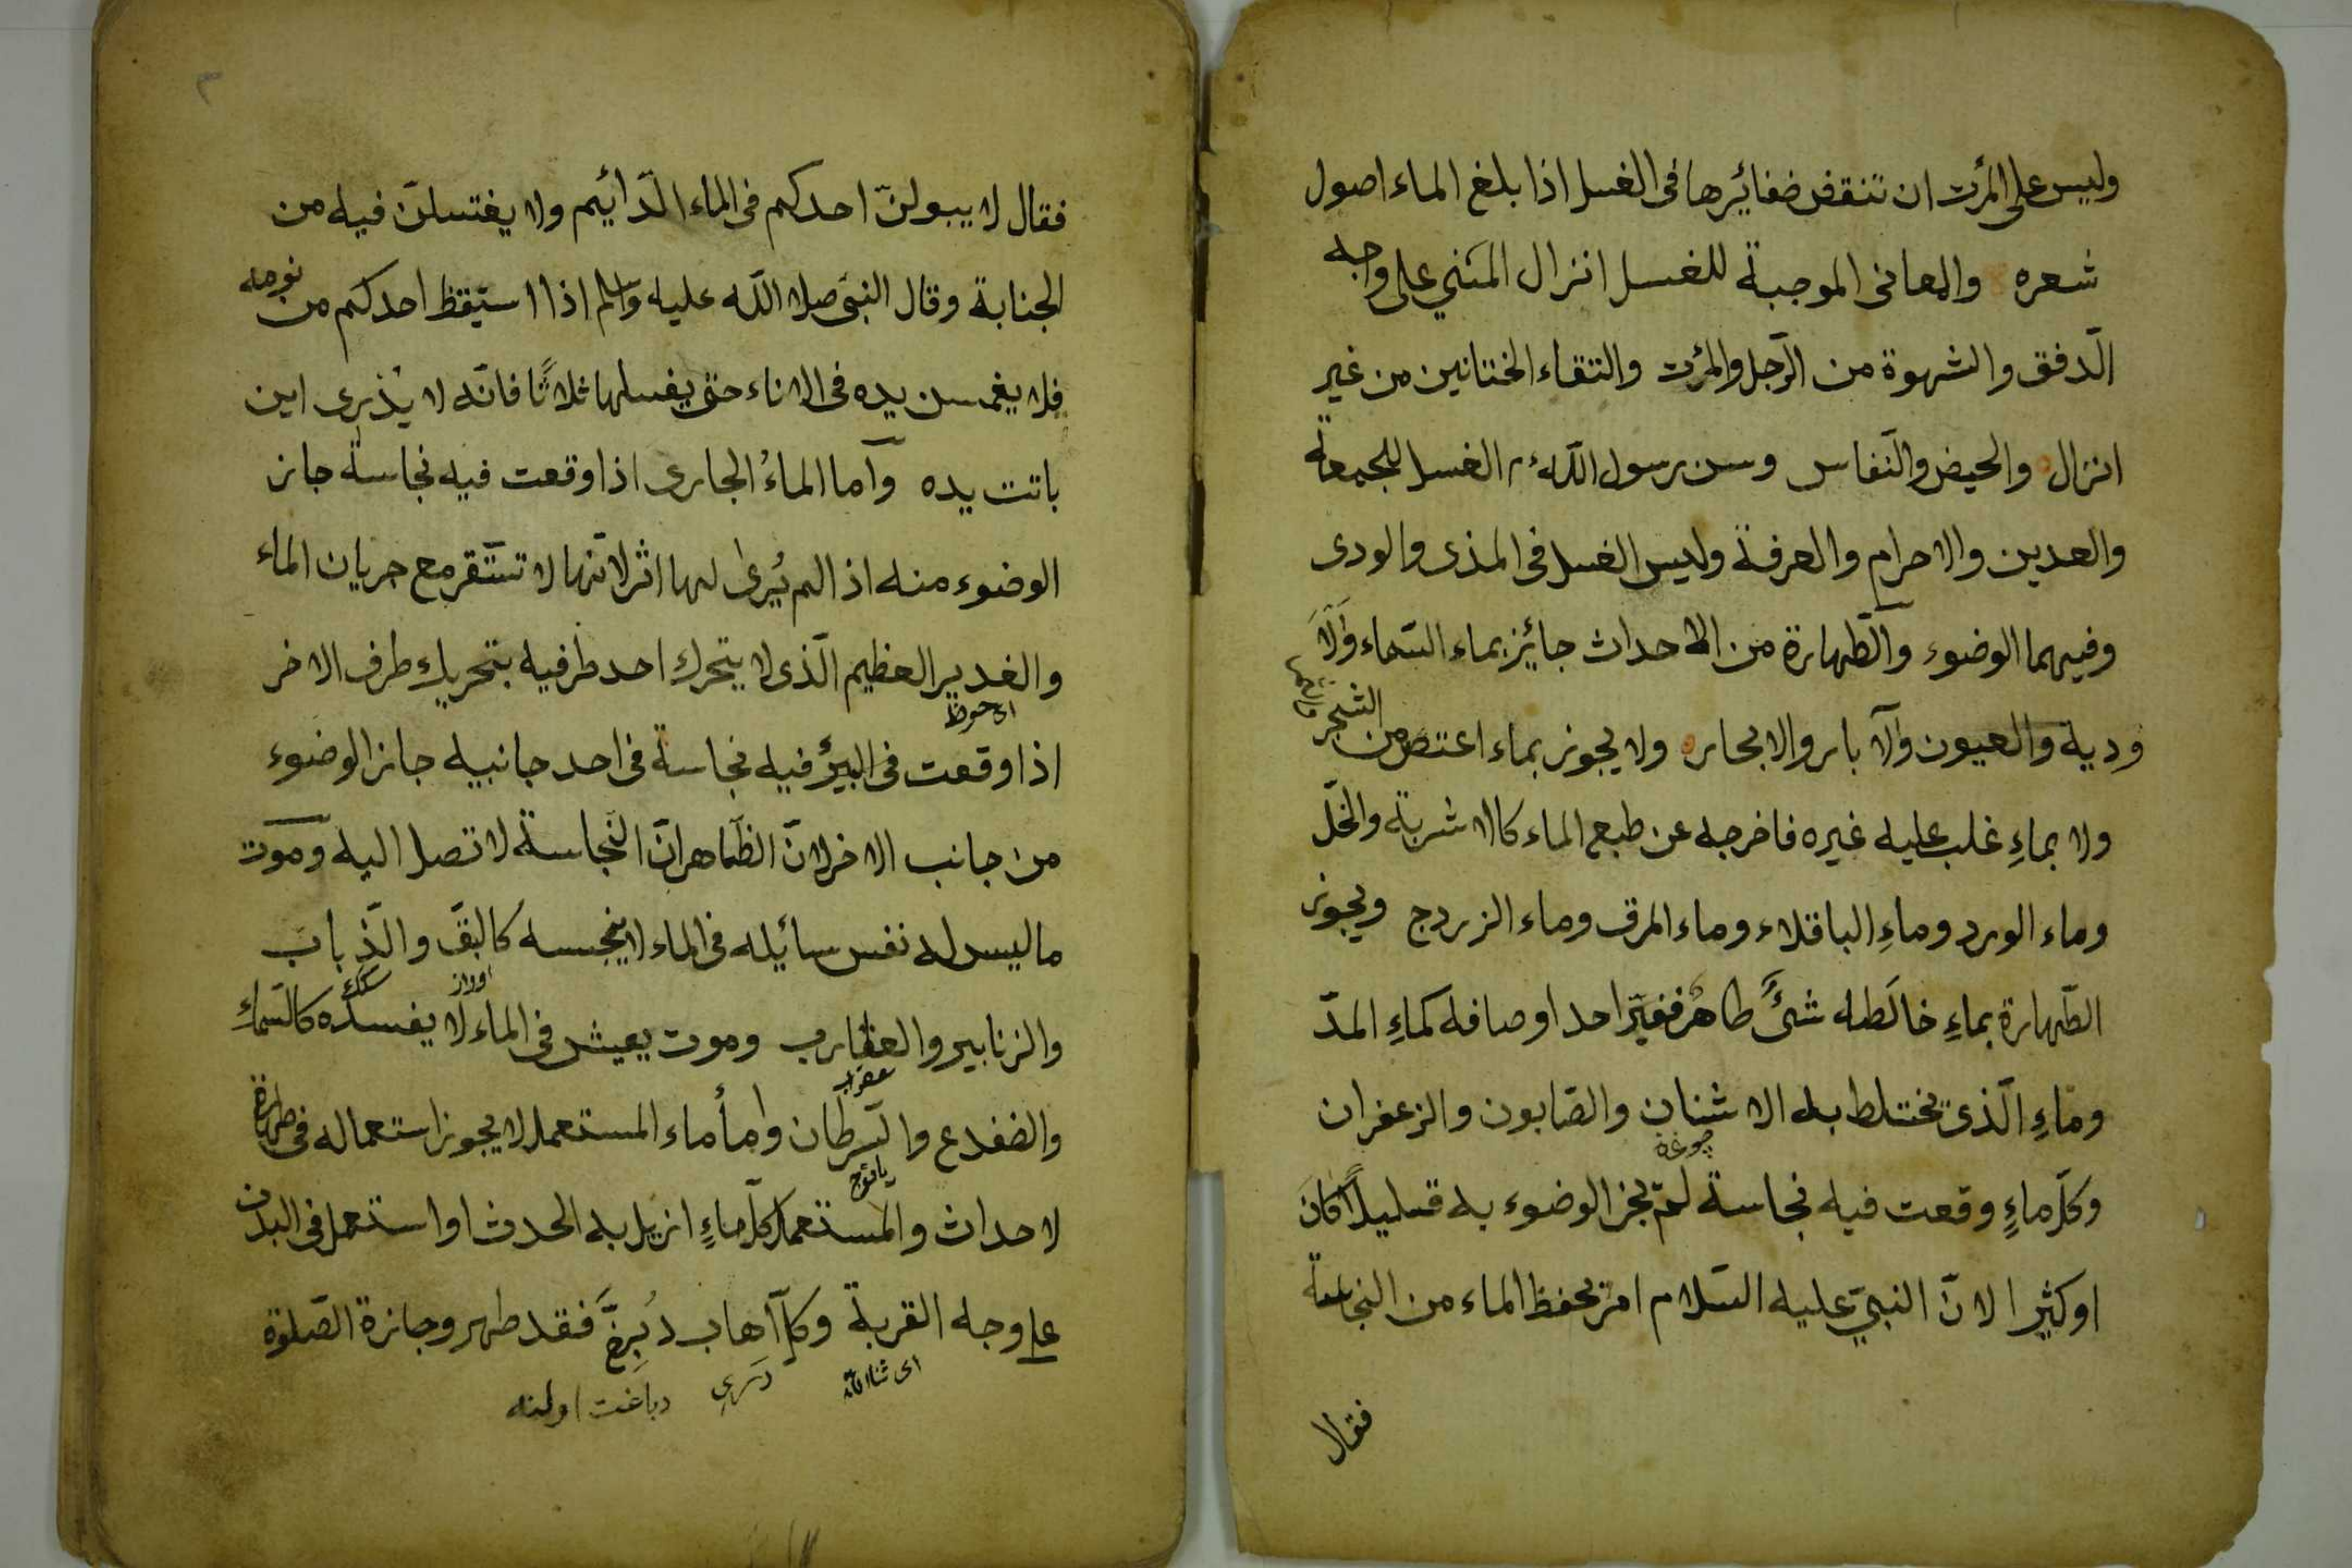 وليس على المرٔت ان تنقض ضفائيرها فى الغسل اذا بلغ الماء اصول
شعره والمعانى الموجبة للغسل انزال المني على واجه
الدّفق والشهوة من الرّجل والمرٔت والتقاء الختانين من غير
انزال والحيض والنّفاس وسن رسول اللّه ۴م الغسل للجمعة
والعدين والاحرام والعرفة وليس الغسل فى المذى والودى
وفيهما الوضوء والطّهارة من الاحداث جائيز بماء السّماء والا
ودية والعيون والآبار والابحار ولا يجوز بماء اعتصر من الشجر
ولا بماءِ غلب عليه غيره فاخرجه عن طبع الماء كالاشربة والخلّ
وماء الورد وماءِ الباقلاء وماء المرق وماء الزردج ويجوز
الطّهارة بماءِ خالَطه شئٌ طاهرٌ فغيّر احد اوصافه كماءِ المدّ
وماءِ الّذى تختلط به الاشنان والصّابون والزعفران
چوغه
وكلّ ماءٍ وقعت فيه نجاسة لم يجز الوضوء به قليلاً كان
او كثيرا لانّ النبيّ عليه السّلام امر بحفظ الماء من النجاسة
فقال
فقال لا يبولنّ احدكم فى الماء الدّائيم ولا يغتسلنّ فيه من
الجنابة وقال النبى صلا اللّه عليه وسلم اذا استيقظ احدكم من نومه
فلا يغمسن يده فى الاناء حتى يغسلها ثلاثًا فانّه لا يدْرى اين
باتت يده وآما الماءُ الجارى اذا وقعت فيه نجاسة جاز
الوضوء منه اذا لم يُرىٰ لها اثر لانّها لا تستَقر مع جريان الماء
والغدير العظيم الّذى لا يتحرك احد طرفيه بتحريك طرف الاخر
اى حوظ
اذا وقعت فى البيرٔ فيه نجاسة فى احد جانبيه جاز الوضوء
من جانب الاخر لانّ الظّاهر انّ النّجاسة لا تصل اليه وموت
ما ليس له نفس سائيله فى الماء لا ينجسه كالبقّ والذّباب
والزنابير والعقارب وموت يعيش فى الماء لا يفسده كالسّماءِ
عقرب
والضفدع والسّرطان وامأ ماء المستعمل لا يجوز استعماله فى طهارة
لاحداث والمستعمل كلّ ماءٍ ازيل به الحدث او استعمل فى البدن
على وجه القربة وكلّ اهاب دُبِغَّ فقد طهر وجازة الصّلوة
دباغت اولنه